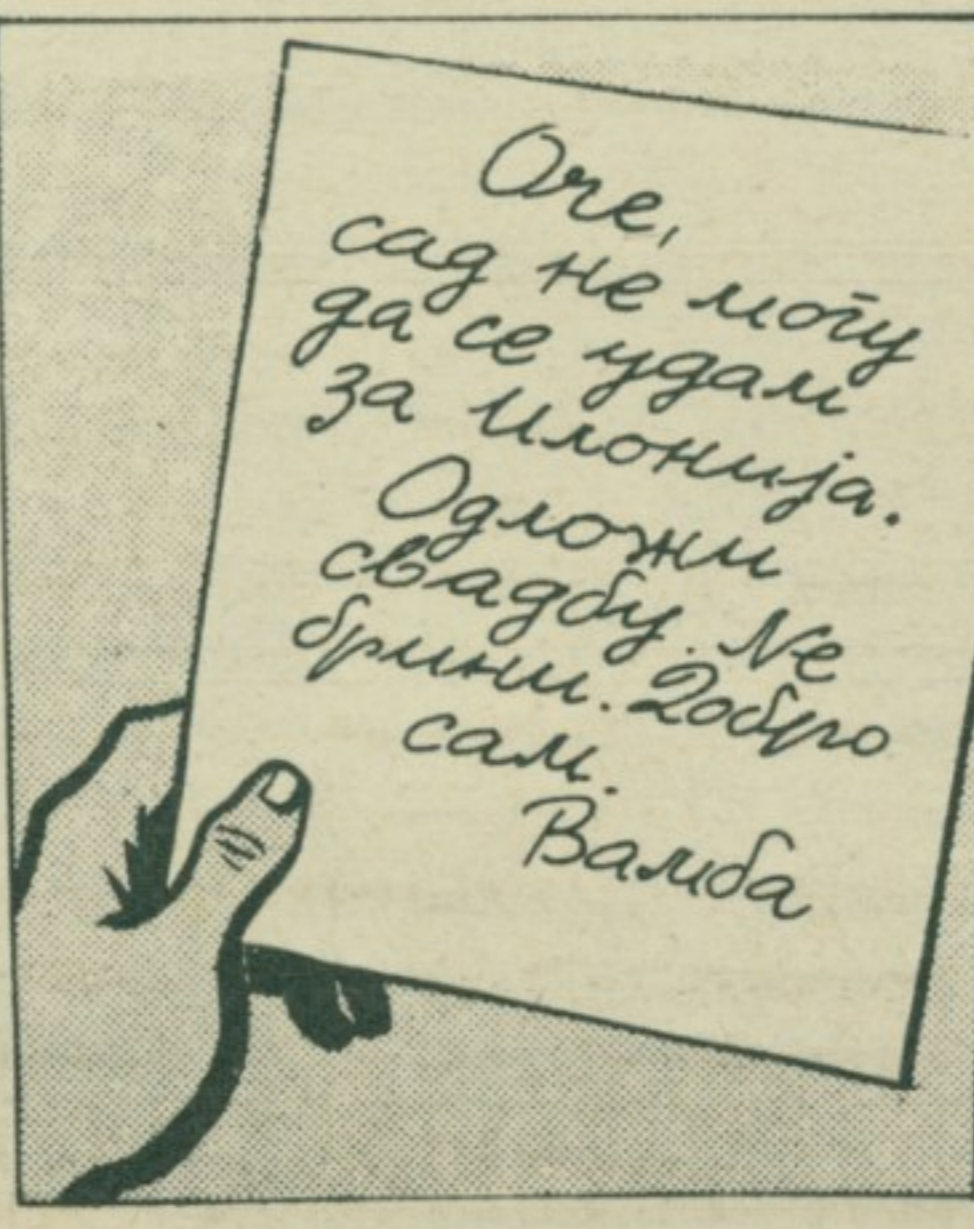 Оче,
сад не могу
да се удам
за Илонија.
Одложи
свадбу. Не
брини. Добро
сам.
Вамба